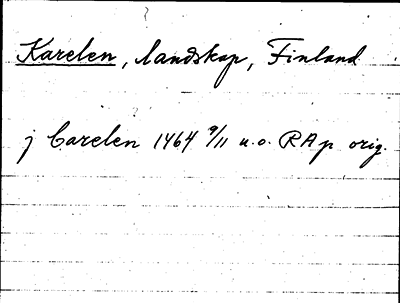 Karelen, landskap, Finland
j Carelen 1464 9/11 u.o. RAp orig.